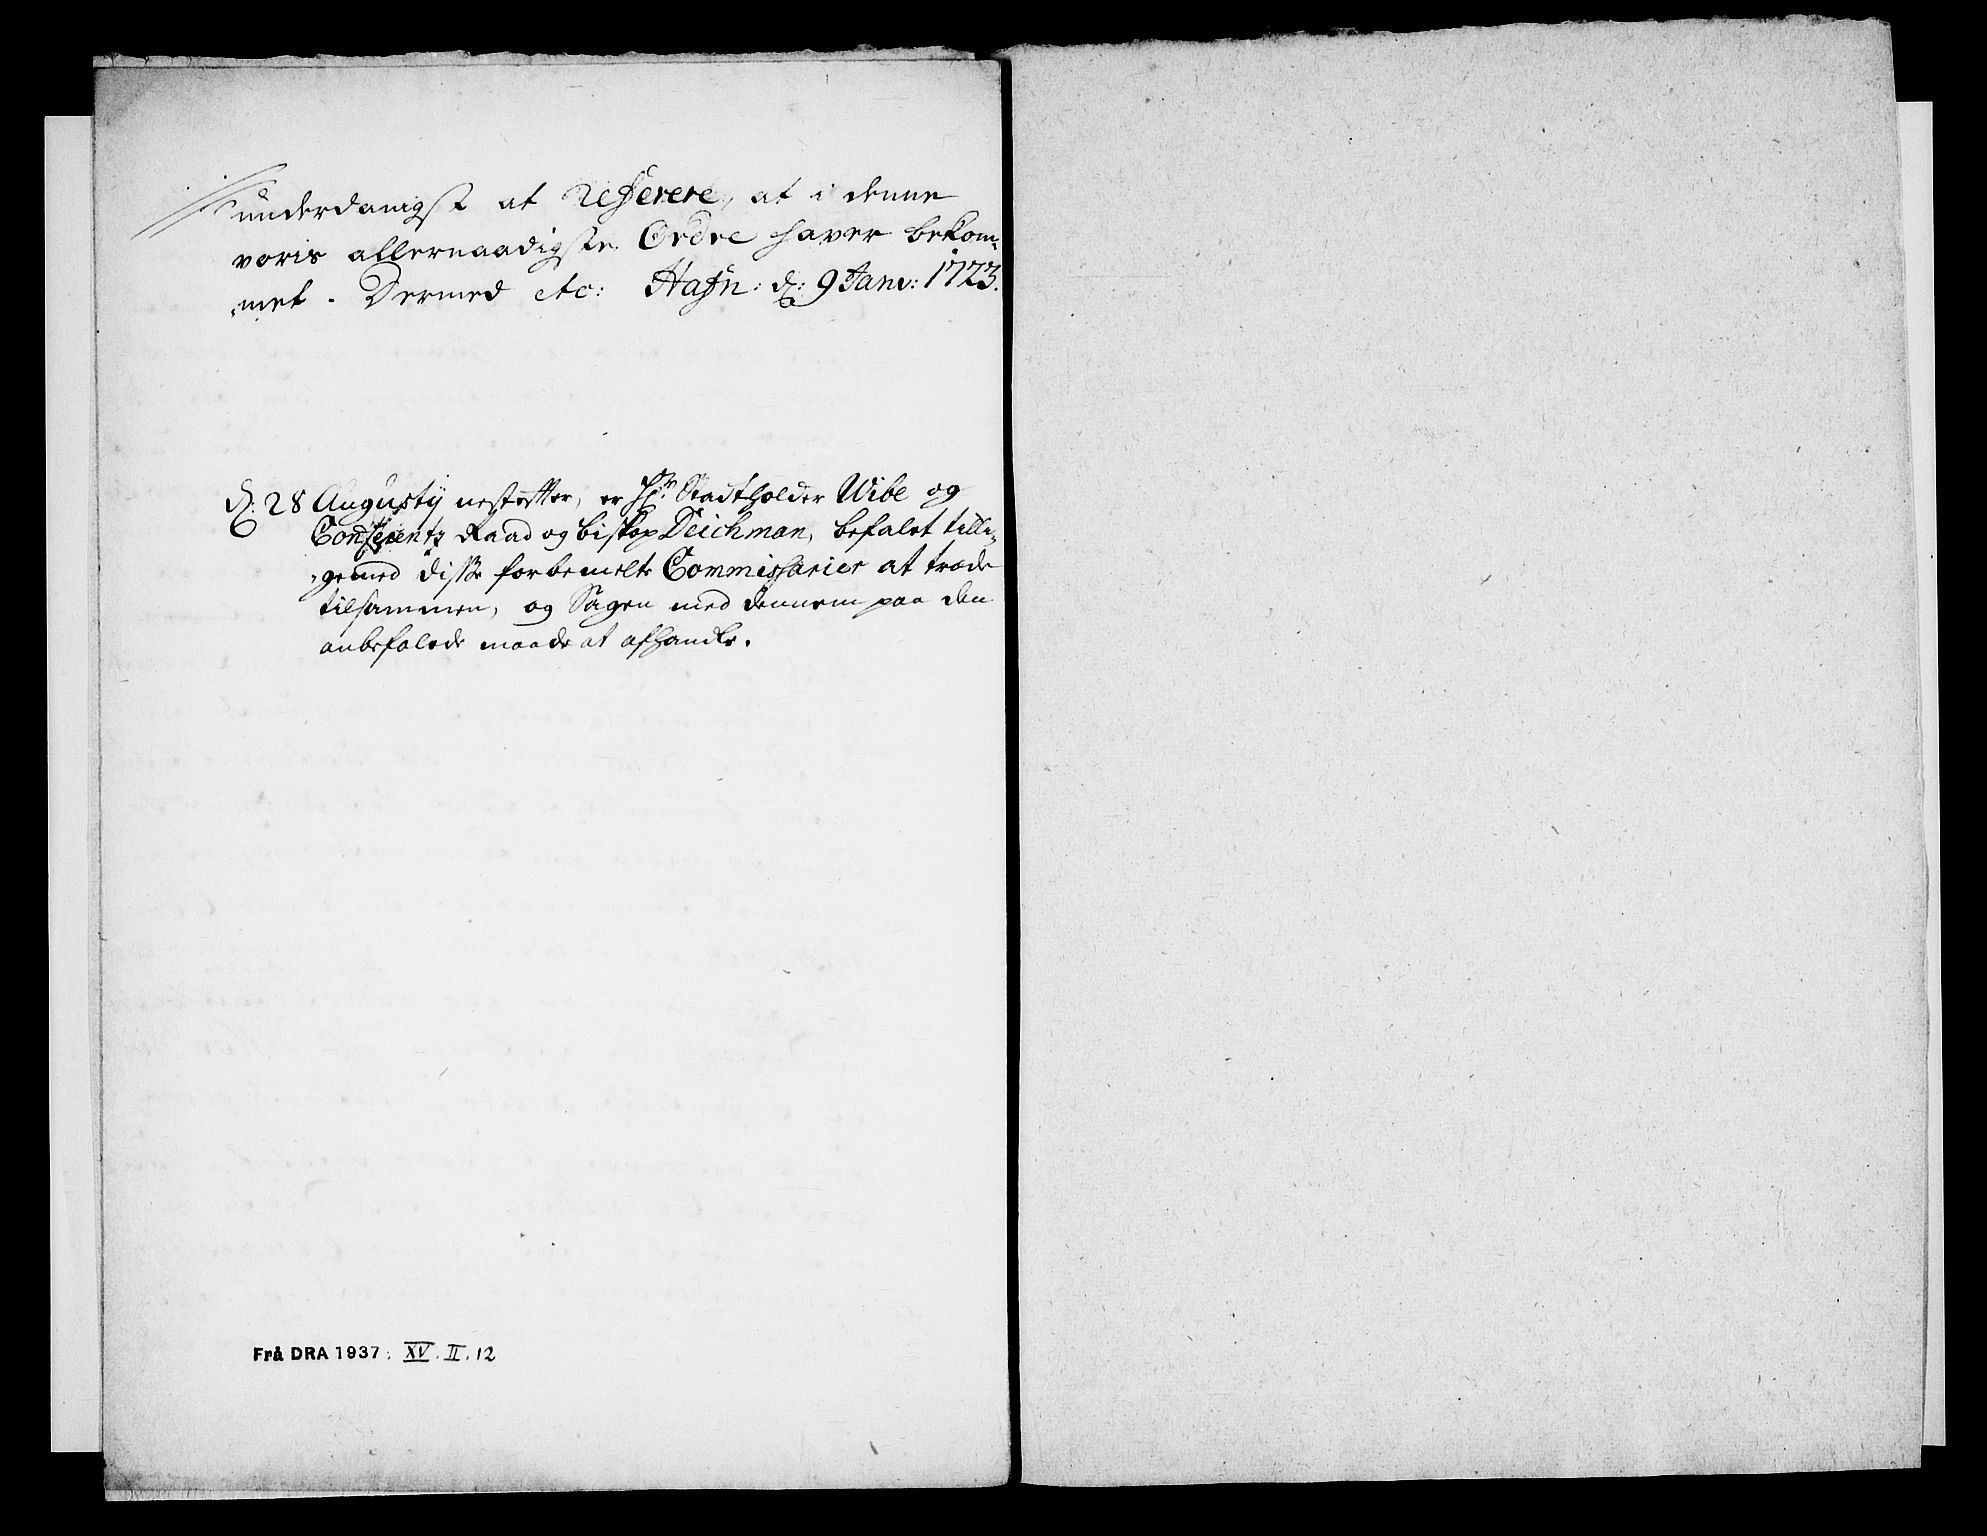 underdanigst at referere, at i denne
voris allernaadigste Ordre haver bekom¬
met. Dermed etc: Hafn: d: 9 Janv: 1723.
d: 28 Augustij nestefter, er Hr. Stadtholder Wibe og
Conferentz Raad og biskop Deichman, befalet tilli¬
gemed disse forbemelte Commissarier at træde
tilsammen, og Sagen med dennem paa den
anbefalede maade at afhandle.
Frå DRA 1937: XV. II. 12